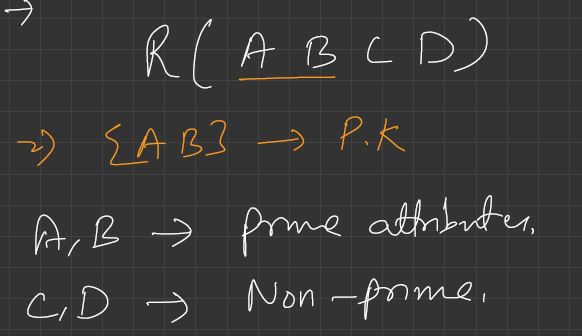 →
R(A B C D)
→ {AB} → P.K
A, B → prime attributes.
C, D → Non-prime.